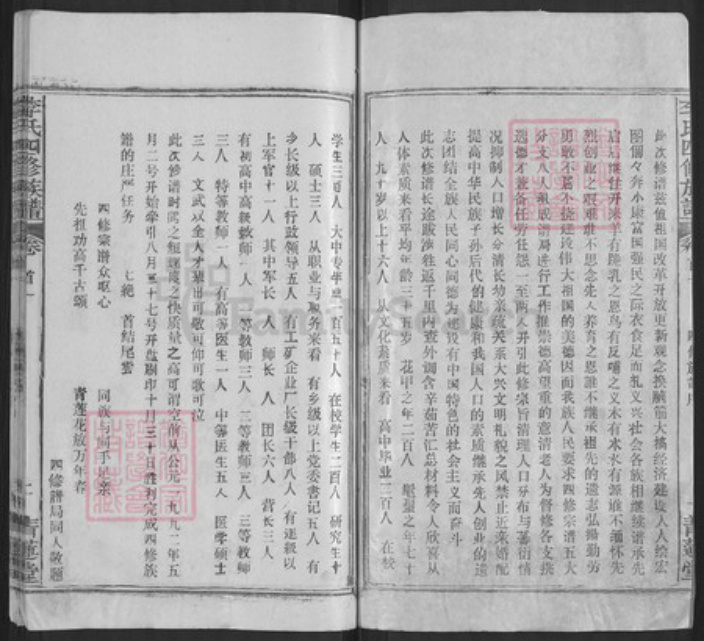 此次修谱兹值祖国改革开放更新观念换脑筋大搞经济建设人人绘宏
图个个奔小康富国强民之际衣食足而礼义兴社会各族相继续谱承先
启后继往开来羊有跪乳之恩鸟有反哺之义木有本水有源谁不缅怀先
烈创业之艰难谁不思念先人养育之恩谁不继承祖先的遗志弘扬勤劳
勇敢不屈不挠建设伟大祖国的美德因而我族人民要求四修宗谱五大
分支八人组成谱局进行工作推崇德高望重的意清老人为督修各支挑
选德才兼备任劳任怨一至两人并引此修宗旨清理人口分布与蕃衍情
况抑制人口增长分清长幼亲疏关系大兴文明礼貌之风禁止近亲婚配
提高中华民族子孙后代的健康和我国人口的素质继承先人创业的遗
志团结全族人民同心同德为建设有中国特色的社会主义而奋斗
此次修谱长途跋涉往返千里内查外调含辛茹苦汇总材料令人欣喜从
人体素质来看平均年龄三十五岁 花甲之年二百八 耄耋之年七十
人 九十岁以上十六人 从文化素质来看 高中毕业三百人 在校
学生三百人 大中专毕业一百五十人 在校学生二百人 研究生十
人 硕士三人 从职业与职务来看 有乡级以上党委书记五人 有
乡长级以上行政领导五人 有工矿企业厂长级干部八人 有连级以
上军官十一人 其中军长一人 师长一人 团长六人 营长三人
有初高中高级教师一人 一等教师三人 二等教师三人 三等教师
三人 特等教师一人 有高等医生一人 中等医生五人 医学硕士
三人 文武双全人才辈出可敬可仰可歌可泣
此次修谱时间之短速度之快质量之高可谓空前从公元一九九二年五
月二号开始牵引八月三十七号开盘刷印十月三十日胜利完成四修族
谱的庄严任务 七绝 首结尾
四修宗谱众呕心 同族与同手足亲
先祖功高千古颂 青莲花放万年春
四修谱局同人敬题
李氏四修族谱
卷首
青莲堂
李氏四修族谱
卷首
青莲堂
FamilySearch